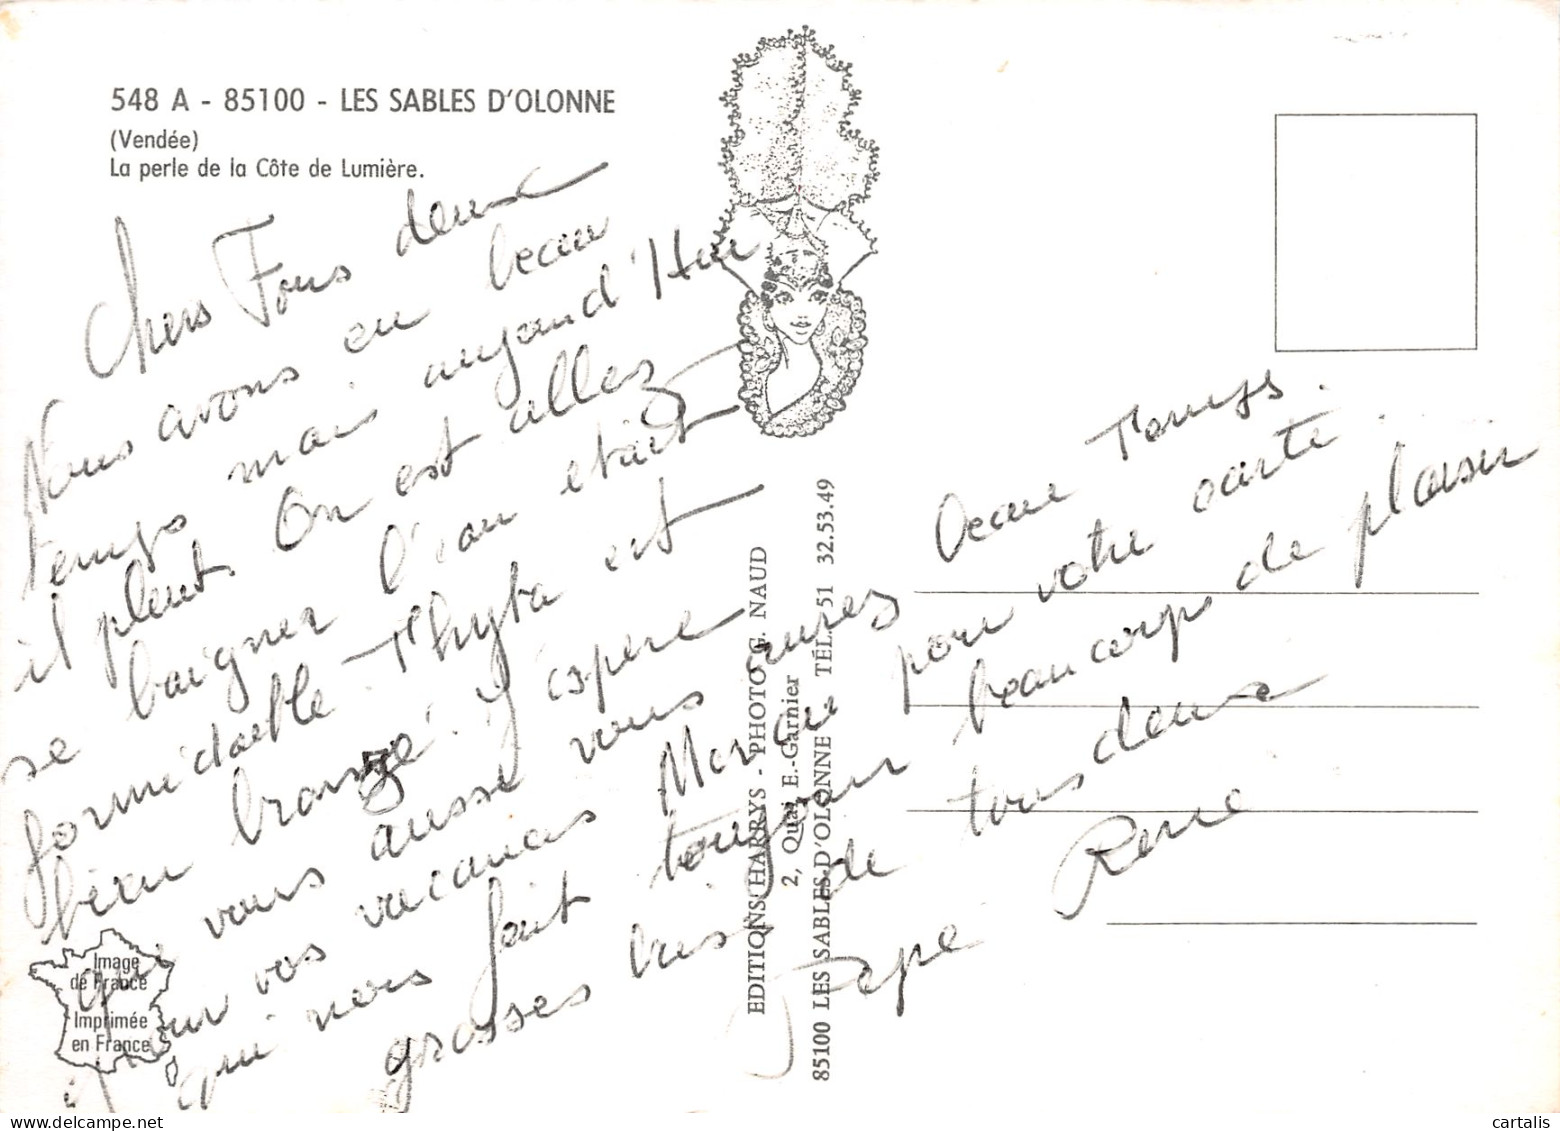 548 A - 85100 - LES SABLES D'OLONNE
(Vendée)
La perle de la Côte de Lumière.
Chers Tous deux
Nous avons eu beau
temps mais aujourd'Hui
il pleut. On est allez
se baigner l'eau etait
formidable Thyba est
bien bronzé. j'éspere
que vous ausse vous aurez beau Temps.
pour vos vacances Merci pour votre carte
qui nous fait toujour beaucorps de plaisir
grosses bais de tous deux
Pepe Rene
EDITIONS HARRYS - PHOTO G. NAUD
2, Quai E.-Garnier
85100 LES SABLES D'OLONNE TÉL. 51 32.53.49
Image
de France
Imprimée
en France
www.delcampe.net
cartalis